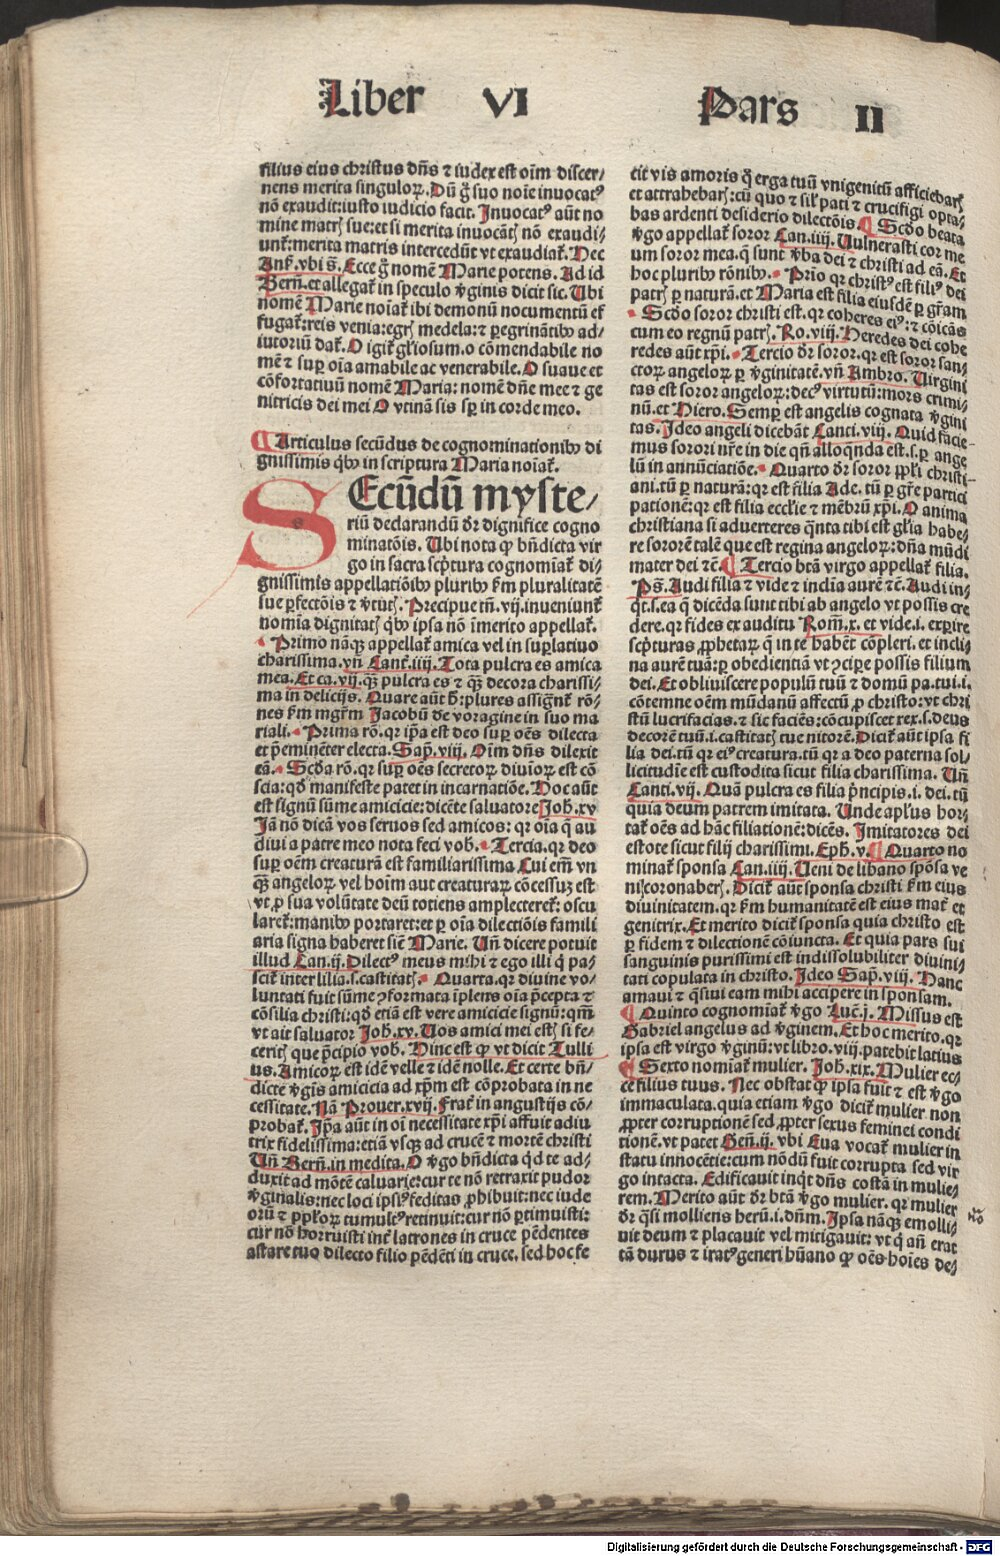 Liber VI Pars II
filius eius christus dñs ⁊ iudex est oĩm discer/
nens merita singuloꝝ. Dũ g̃ suo noĩe inuocatꝰ
nõ exaudit: iusto iudicio facit. Inuocatꝰ aũt no
mine matrꝭ sue: et si merita inuocãtꝭ nõ exaudi/
unt᷑: merita matris intercedũt vt exaudiat᷑. Nec
Anẜ. vbi s̃. Ecce g̃ nomẽ Marie potens. Ad id
Berñ. et allegat᷑ in speculo ꝟginis dicit sic. Ubi
nomẽ Marie noĩat᷑ ibi demonũ nocumentũ ef
fugat᷑: reis venia: egrꝭ medela: ⁊ ꝑegrinãtibꝰ ad/
iutoriũ dat᷑. O igit᷑ gl̃iosum. o cõmendabile no
mẽ ⁊ suꝑ oĩa amabile ac venerabile. O suaue et
cõfortatiuũ nomẽ Maria: nomẽ dñe mee ⁊ ge
nitricis dei mei O vtinã sis sꝑ in corde meo.
¶ Articulus secũdus de cognominationibꝰ di
gnissimis qͥbꝰ in scriptura Maria noĩat᷑.
SEcũdũ myste/
riũ declarandũ dr̃ dignifice cogno
minatõis. Ubi nota ꝙ bñdicta vir
go in sacra scpͥtura cognomĩat᷑ di/
gnissimis appellatiõibꝰ pluribꝰ ẜm pluralitatẽ
sue ꝑfectõis ⁊ ꝟtutꝭ. Precipue tñ. vij. inueniunt᷑
nomĩa dignitatꝭ qͥbꝰ ipsa nõ ĩmerito appellat᷑.
Primo nãqꝫ appellat᷑ amica vel in suꝑlatiuo
charissima. vñ Cant᷑. iiij. Tota pulcra es amica
mea. Et ca. vij. qꝫ pulcra es ⁊ qꝫ decora charissi/
ma in delicijs. Quare aũt h̃: plures assignt᷑ rõ/
nes ẜm mgr̃m Jacobũ de voragine in suo ma
riali. Prima rõ. qr ip̃a est deo suꝑ oẽs dilecta
et p̃eminẽter electa. Sap̃. viij. Oĩm dñs dilexit
eã. Scd̃a rõ. qr suꝑ oẽs secretoꝝ diuĩoꝝ est cõ
scia: qd̃ manifeste patet in incarnatiõe. Hoc aũt
est signũ sũme amicicie: dicẽte saluatore Joh̃. xv
Jã nõ dicã vos seruos sed amicos: qr oĩa q̃ au
diui a patre meo nota feci vob̃. Tercia. qr deo
suꝑ oẽm creaturã est familiarissima Cui em̃ vn
qꝫ angeloꝝ vel hoĩm aut creaturaꝝ cõcessuꝫ est
vt ꝓ sua volũtate deũ totiens amplecteret᷑: oscu
laret᷑: manibꝰ portaret: et ꝑ oĩa dilectiõis famili
aria signa haberet sicut Marie. Uñ dicere potuit
illud Can. ij. Dilectꝰ meus mihi ⁊ ego illi q̃ pa/
scit᷑ inter lilia. s. castitatꝭ. Quarta. qr diuine vo/
luntati fuit sũme ↄformata ĩplens oĩa p̃cepta ⁊
cõsilia christi: qd̃ etiã est vere amicicie signũ: qm̃
vt ait saluator Joh̃. xv. Uos amici mei estꝭ si fe/
ceritꝭ que p̃cipio vob̃. Hinc est ꝙ vt dicit Tulli
us. Amicoꝝ est idẽ velle ⁊ idẽ nolle. Et certe bñ/
dicte ꝟgĩs amicicia ad xp̃m est cõprobata in ne
cessitate. Nã Prouer. xvij. Frat᷑ in angustijs cõ/
probat᷑. Ip̃a aũt in oĩ necessitate xp̃i affuit adiu
trix fidelissima: etiã vsqꝫ ad crucẽ ⁊ mortẽ christi
Uñ Berñ. in medita. O ꝟgo bñdicta qd te ad/
duxit ad mõtẽ caluarie: cur te nõ retraxit pudor
ꝟginalis: nec loci ipsiꝰ feditas ꝓhibuit: nec iude
orũ ⁊ pplꝫoꝝ tumultꝰ retinuit: cur nõ ꝑtimuisti:
cur nõ horruisti int᷑ latrones in cruce pẽdentes
astare tuo dilecto filio pẽdẽti in cruce. sed hoc fe
cit vis amoris q̃ erga tuũ vnigenitũ afficiebarꝭ
et attrahebarꝭ: cũ quo ⁊ sil̃ pati ⁊ crucifigi opta/
bas ardenti desiderio dilectõis. ¶ Scd̃o beata
ꝟgo appellat᷑ soror Can. iiij. Uulnerasti cor me
um soror mea. q̃ sunt ꝟba dei ⁊ christi ad eã. Et
hoc pluribꝰ rõnibꝰ. Prĩo qr christꝰ est filiꝰ dei
patrꝭ ꝑ naturã. et Maria est filia eiusdẽ ꝑ gr̃am
Scd̃o soror christi est. qr coheres eiꝰ: ⁊ cõicãs
cum eo regnũ patrꝭ. Ro. viij. Heredes dei cohe
redes aũt xp̃i. Tercio dr̃ soror. qr est soror san/
ctoꝝ angeloꝝ ꝑ ꝟginitatẽ. vñ Ambro. Uirgini
tas est soror angeloꝝ: decꝰ virtutũ: mors crimi/
nũ. et Hiero. Semꝑ est angelis cognata ꝟgini
tas. Ideo angeli dicebãt Canti. viij. Quid facie
mus sorori nr̃e in die qñ alloqͣnda est. s. ꝑ ange
lũ in annũciatiõe. Quarto dr̃ soror ppl̃i christi
ani. tũ ꝑ naturã: qr est filia Ade. tũ ꝑ gr̃e partici
pationẽ: qr est filia eccl̃ie ⁊ mẽbrũ xp̃i. O anima
christiana si aduerteres qͣnta tibi est gl̃ia habe/
re sororẽ talẽ que est regina angeloꝝ: dñа mũdi
mater dei ⁊c̃. ¶ Tercio btã virgo appellat᷑ filia.
Ps̃. Audi filia ⁊ vide ⁊ inclĩa aurẽ ⁊c̃. Audi in/
qͥt. s. ea q̃ dicẽda sunt tibi ab angelo vt possis cre
dere. qr fides ex auditu Rom̃. x. et vide. i. exꝑire
scpͥturas ꝓphetaꝝ q̃ in te habẽt cõpleri. et incli
na aurẽ tuã: ꝑ obedientiã vt ↄciꝑe possis filium
dei. Et obliuiscere populũ tuũ ⁊ domũ pa. tui. i.
cõtemne oẽm mũdanũ affectũ ꝓ christo: vt chri
stũ lucrifacias. ⁊ sic faciẽs: cõcupiscet rex. s. deus
decorẽ tuũ. i. castitatꝭ tue nitorẽ. Dicit᷑ aũt ipsa fi
lia dei. tũ qr eiꝰ creatura. tũ qr a deo paterna sol/
licitudĩe est custodita sicut filia charissima. Uñ
Canti. vij. Quã pulcra es filia p̃ncipis. i. dei. tũ
quia deum patrem imitata. Unde apl̃us hor/
tat᷑ oẽs ad hãc filiationẽ: dicẽs. Imitatores dei
estote sicut filij charissimi. Eph̃. v. ¶ Quarto no
minat᷑ sponsa Can. iiij. Ueni de libano spõsa ve
ni: coronaberꝭ. Dicit᷑ aũt sponsa christi ẜm eius
diuinitatem. qr ẜm humanitatẽ est eius mat᷑ et
genitrix. Et merito dicit᷑ sponsa quia christo est
ꝑ fidem ⁊ dilectionẽ cõiuncta. Et quia pars sui
sanguinis purissimi est indissolubiliter diuini/
tati copulata in christo. Ideo Sap̃. viij. Hanc
amaui ⁊ q̃siui eam mihi accipere in sponsam.
¶ Quinto cognomĩat᷑ ꝟgo Luc̃. j. Missus est
Gabriel angelus ad ꝟginem. Et hoc merito. qr
ipsa est virgo ꝟginũ: vt libro. viij. patebit latius
¶ Sexto nomĩat᷑ mulier. Joh̃. xix. Mulier ec/
ce filius tuus. Nec obstat ꝙ ipsa fuit ⁊ est ꝟgo
immaculata. quia etiam ꝟgo dicit᷑ mulier non
ꝓpter corruptionẽ sed ꝓpter sexus feminei condi
tionẽ. vt patet Gen̄. ij. vbi Eua vocat᷑ mulier in
statu innocẽtie: cum nõdũ fuit corrupta sed vir
go intacta. Edificauit inqͥt dñs costã in mulie/
rem. Merito aũt dr̃ btã ꝟgo mulier. qr mulier
dr̃ q̃si molliens herũ. i. dñm. Ipsa nãqꝫ emolli/
uit deum ⁊ placauit vel mitigauit: vt q̃ añ erat
tã durus ⁊ iratꝰ generi hũano ꝙ oẽs hoĩes de/
Digitalisierung gefördert durch die Deutsche Forschungsgemeinschaft - DFG